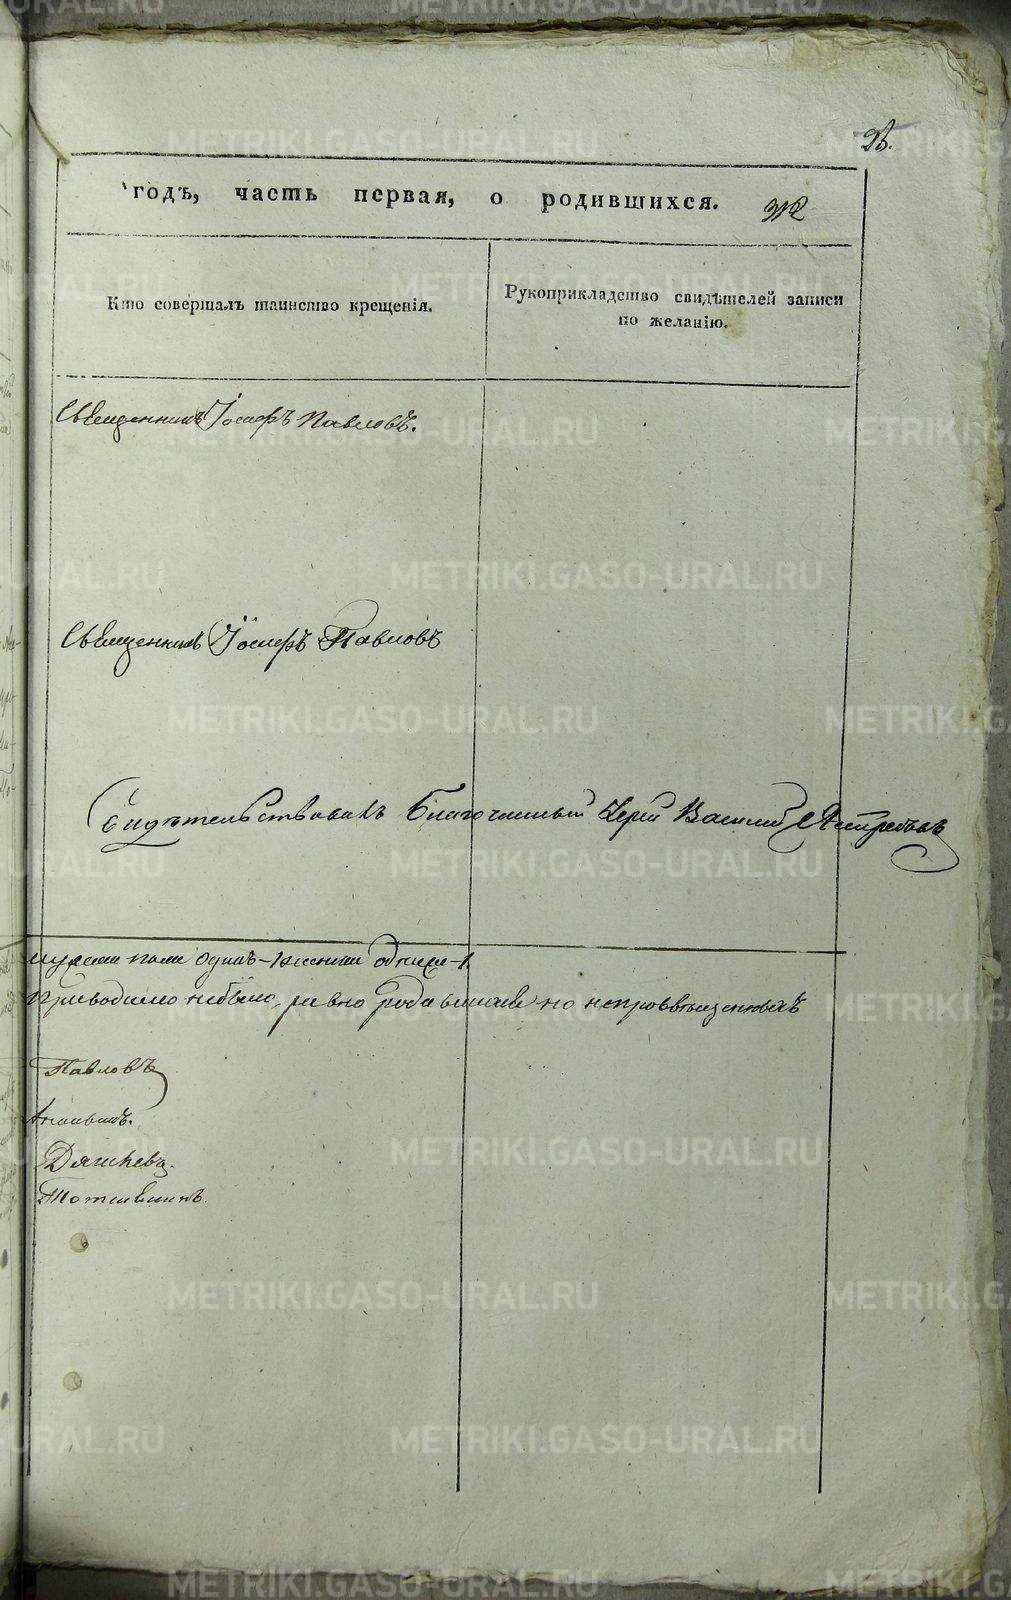 26.
годъ, часть первая, о родившихся. 312
Кто совершалъ таинство крещенія.
Рукоприкладство свидѣтелей записи по желанію.
Священникъ Іосифъ Павловъ.
Священникъ Іосифъ Павловъ
Свидѣтельствовалъ Благочинный Іерей Василій Ястребовъ
мужеска пола одинъ-1 женска одна-1.
небыло, равно родившихся но
Павловъ
Ананьинъ.
Дягилевъ.
METRIKI.GASO-URAL.RU